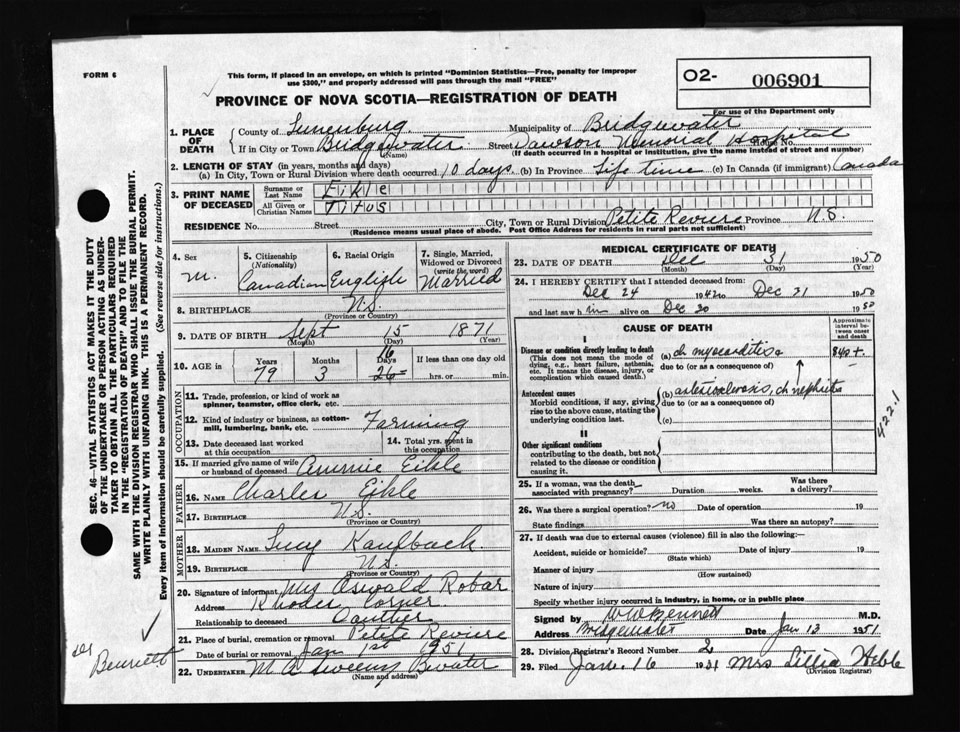 FORM 6
This form, if placed in an envelope, on which is printed "Dominion Statistics—Free, penalty for improper
use $300," and properly addressed will pass through the mail "FREE"
O2- 006901
For use of the Department only
PROVINCE OF NOVA SCOTIA—REGISTRATION OF DEATH
1. PLACE OF DEATH
County of Lunenburg Municipality of Bridgewater
If in City or Town Bridgewater (Name) Street Dawson Memorial Hospital House No.
(If death occurred in a hospital or institution, give the name instead of street and number)
2. LENGTH OF STAY (in years, months and days)
(a) In City, Town or Rural Division where death occurred 10 days (b) In Province Life time (c) In Canada (if immigrant) Canada
3. PRINT NAME OF DECEASED
Surname or Last Name Eikle
All Given or Christian Names Titus
RESIDENCE No. Street City, Town or Rural Division Petite Reviere Province N.S.
(Residence means usual place of abode. Post Office Address for residents in rural parts not sufficient)
4. Sex M.
5. Citizenship (Nationality) Canadian
6. Racial Origin English
7. Single, Married, Widowed or Divorced (write the word) Married
8. BIRTHPLACE N.S.
(Province or Country)
9. DATE OF BIRTH Sept 15 1871
(Month) (Day) (Year)
10. AGE in Years Months Days If less than one day old
79 3 16 26 hrs. or min.
OCCUPATION
11. Trade, profession, or kind of work as spinner, teamster, office clerk, etc.
12. Kind of industry or business, as cotton-mill, lumbering, bank, etc. Farming
13. Date deceased last worked at this occupation
14. Total yrs. spent in this occupation
15. If married give name of wife or husband of deceased Eikle
FATHER
16. NAME Charles Eikle
17. BIRTHPLACE N.S.
(Province or Country)
MOTHER
18. MAIDEN NAME Lucy Kaulback
19. BIRTHPLACE N.S.
(Province or Country)
20. Signature of informant Mrs Oswald Robar
Address Rhodes Corner
Relationship to deceased Dauther
21. Place of burial, cremation or removal Petite Reviere
Date of burial or removal Jan 1st 1951
22. UNDERTAKER M A Sweeny Bwater
(Name and address)
MEDICAL CERTIFICATE OF DEATH
23. DATE OF DEATH Dec 31 1950
(Month) (Day) (Year)
24. I HEREBY CERTIFY that I attended deceased from:
Dec 24 1942 to Dec 31 1950
and last saw h im alive on Dec 30 1950
CAUSE OF DEATH
Approximate interval between onset and death
I
Disease or condition directly leading to death
(This does not mean the mode of dying, e.g., heart failure, asthenia, etc. It means the disease, injury, or complication which caused death.)
(a) ch myocarditis
due to (or as a consequence of)
Antecedent causes
Morbid conditions, if any, giving rise to the above cause, stating the underlying condition last.
(b) arteriosclerosis, ch nephritis
due to (or as a consequence of)
(c)
422.1
II
Other significant conditions
contributing to the death, but not related to the disease or condition causing it.
25. If a woman, was the death associated with pregnancy? Duration weeks. Was there a delivery?
26. Was there a surgical operation? no Date of operation 19
State findings Was there an autopsy?
27. If death was due to external causes (violence) fill in also the following:—
Accident, suicide or homicide? Date of injury 19
(State which)
Manner of injury
(How sustained)
Nature of injury
Specify whether injury occurred in industry, in home, or in public place
W W Bennett M.D.
Address Bridgewater Date Jan 13 1951
28. Division Registrar's Record Number 2
29. Filed Jan. 16 1951 Mrs Lillia Hebb
(Division Registrar)
SEC. 46—VITAL STATISTICS ACT MAKES IT THE DUTY
OF THE UNDERTAKER OR PERSON ACTING AS UNDER-
TAKER TO OBTAIN ALL THE PARTICULARS REQUIRED
IN THE "REGISTRATION OF DEATH" AND TO FILE THE
SAME WITH THE DIVISION REGISTRAR WHO SHALL ISSUE THE BURIAL PERMIT.
WRITE PLAINLY WITH UNFADING INK. THIS IS A PERMANENT RECORD.
Every item of information should be carefully supplied. (See reverse side for instructions.)
Bennett